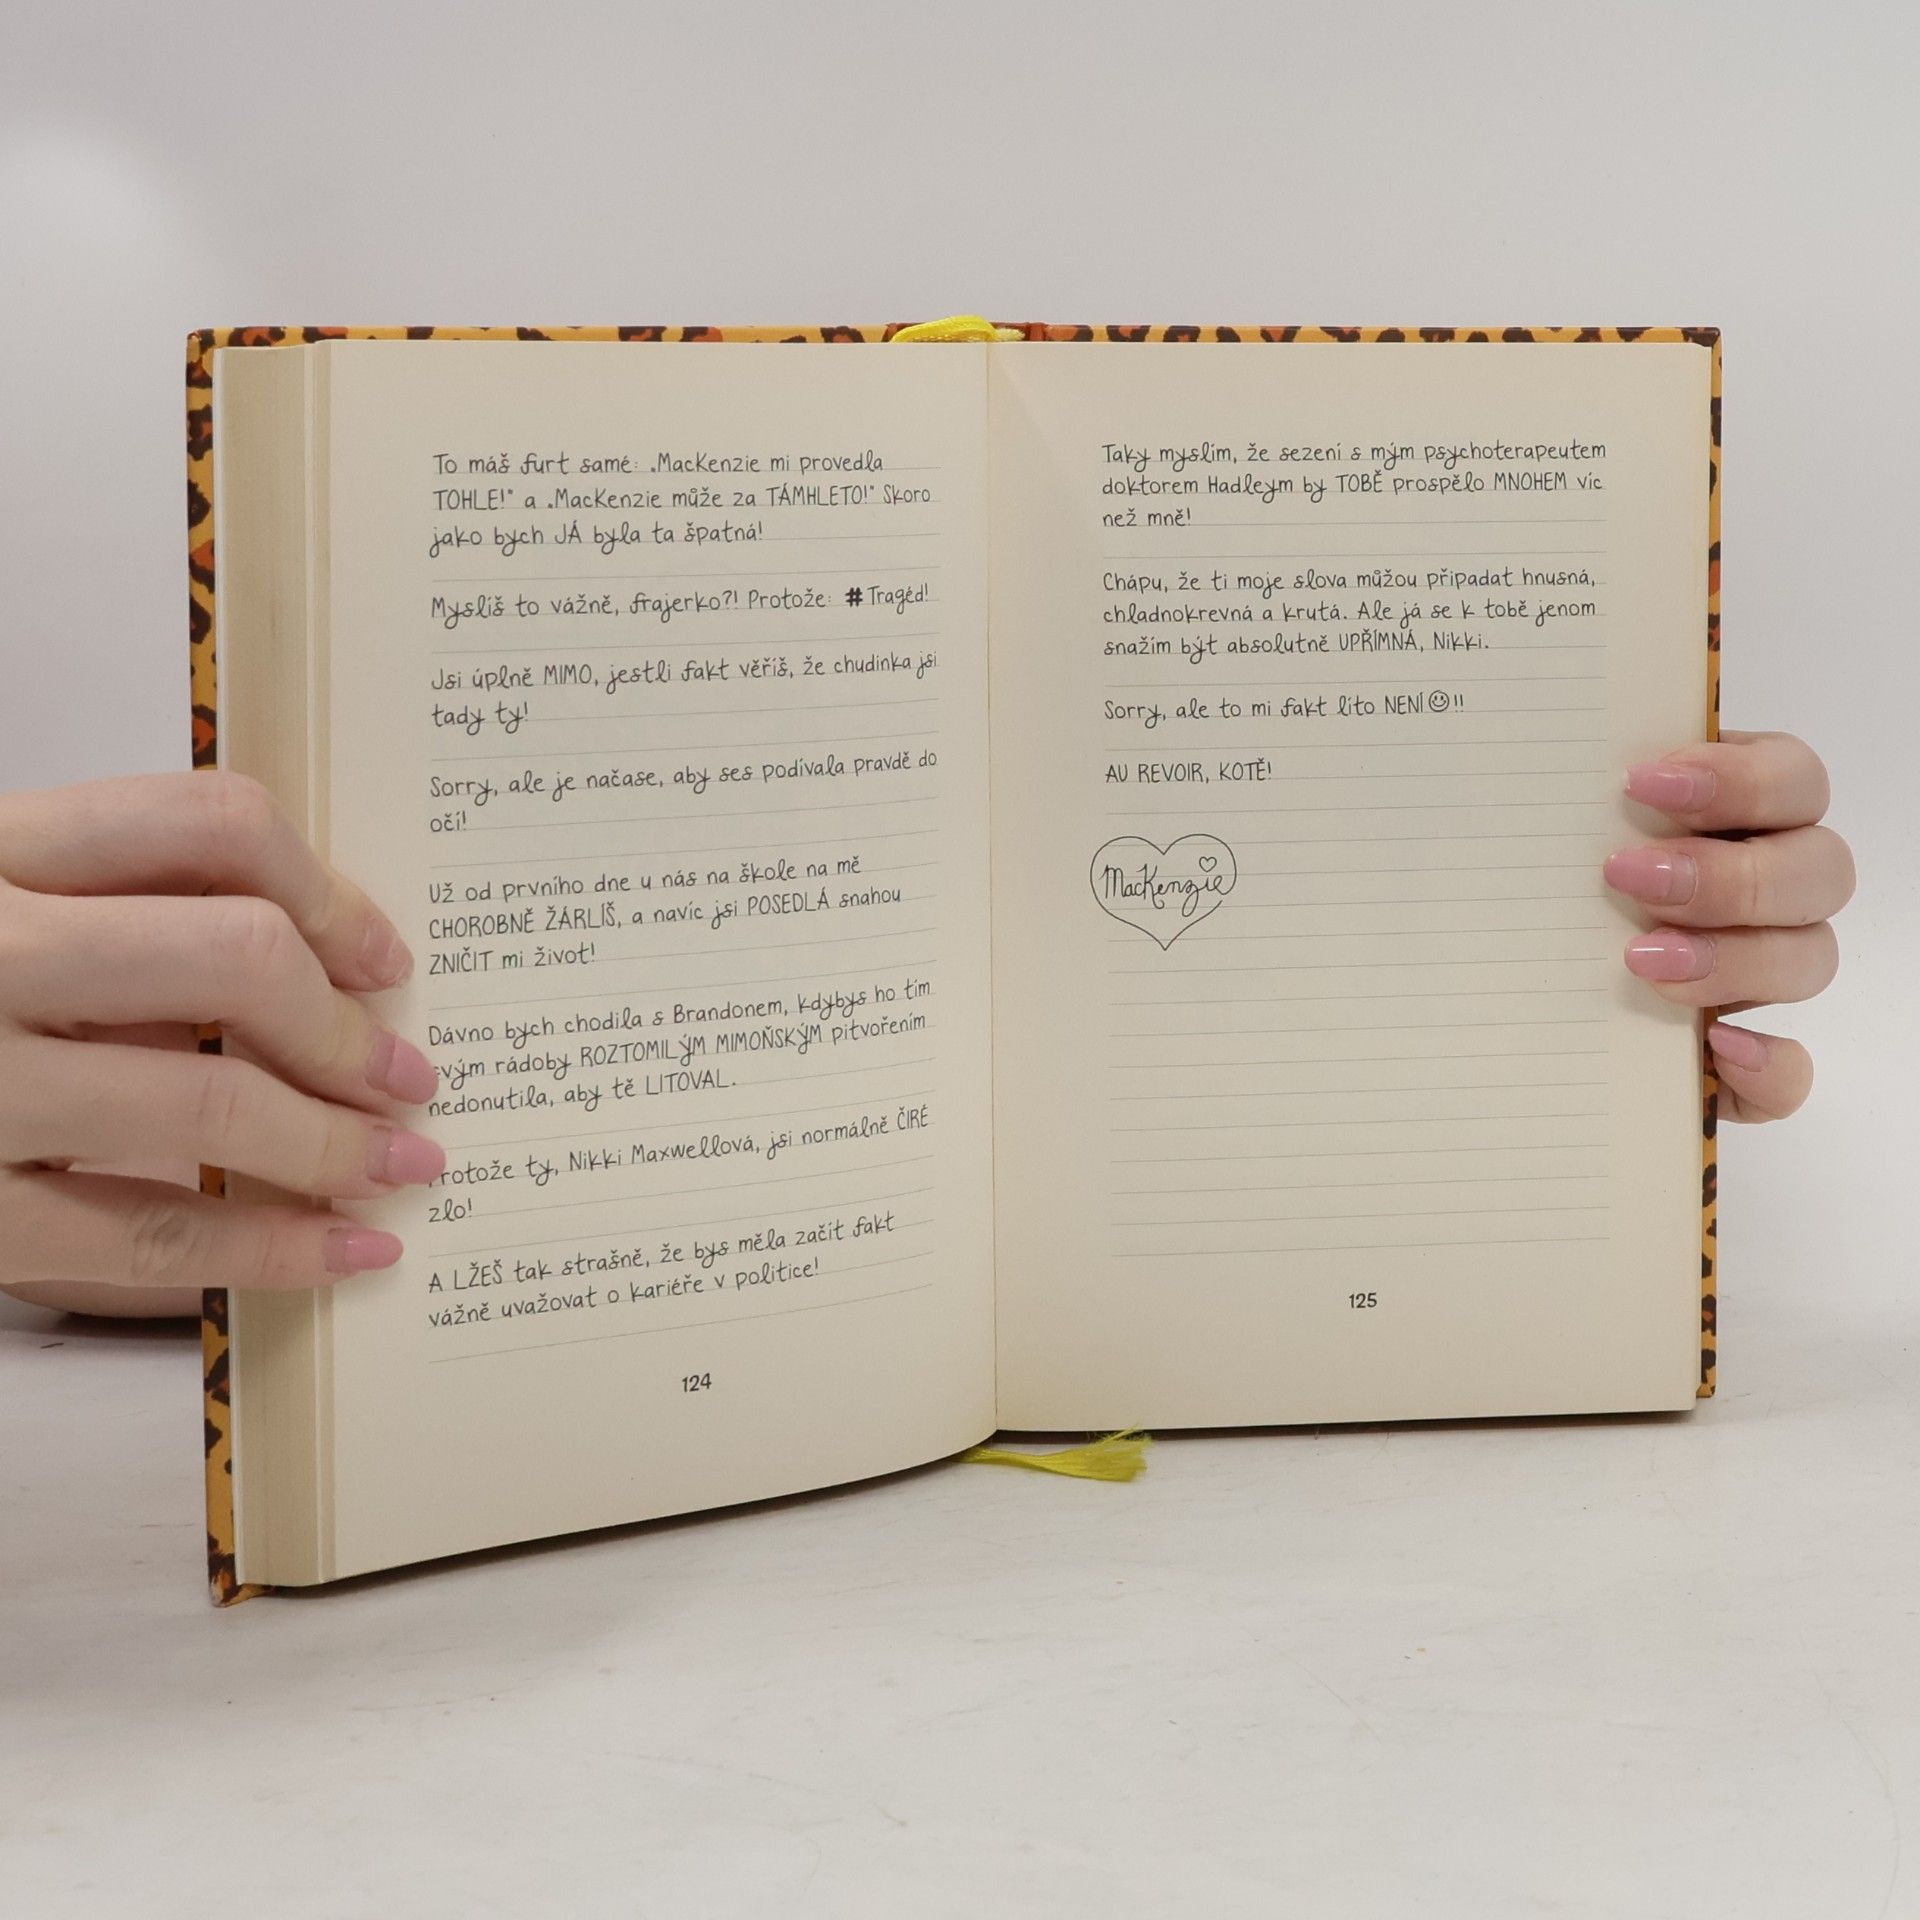 To máš furt samé: „MacKenzie mi provedla
TOHLE!" a „MacKenzie může za TÁMHLETO!" Skoro
jako bych JÁ byla ta špatná!
Myslíš to vážně, frajerko?! Protože: #Tragéd!
Jsi úplně MIMO, jestli fakt věříš, že chudinka jsi
tady ty!
Sorry, ale je načase, aby ses podívala pravdě do
očí!
Už od prvního dne u nás na škole na mě
CHOROBNĚ ŽÁRLÍŠ, a navíc jsi POSEDLÁ snahou
ZNIČIT mi život!
Dávno bych chodila s Brandonem, kdybys ho tím
svým rádoby ROZTOMILÝM MIMOŇSKÝM pitvořením
nedonutila, aby tě LITOVAL.
Protože ty, Nikki Maxwellová, jsi normálně ČIRÉ
zlo!
A LŽEŠ tak strašně, že bys měla začít fakt
vážně uvažovat o kariéře v politice!
124
Taky myslím, že sezení s mým psychoterapeutem
doktorem Hadleym by TOBĚ prospělo MNOHEM víc
než mně!
Chápu, že ti moje slova můžou připadat hnusná,
chladnokrevná a krutá. Ale já se k tobě jenom
snažím být absolutně UPŘÍMNÁ, Nikki.
Sorry, ale to mi fakt líto NENÍ☺!!
AU REVOIR, KOTĚ!
MacKenzie
125